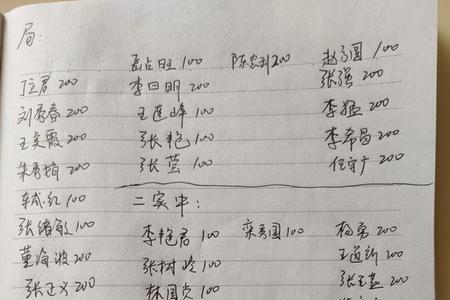 局:
岳占旺 100 陈忠利 200 赵方圆 100
丁立君 200 李日明 200 张强 200
刘秀春 200 王莲峰 100 李猛 200
王文霞 200 张艳 100 李希昌 200
朱秀梅 200 张莹 100 任守广 200
韩红 100 二实中:
张绪敏 100 李艳君 100 栾秀国 100 杨帝 200
董海波 200 张树玲 100 王道新 200
张正义 200 林国贞 100 张玉燕 200